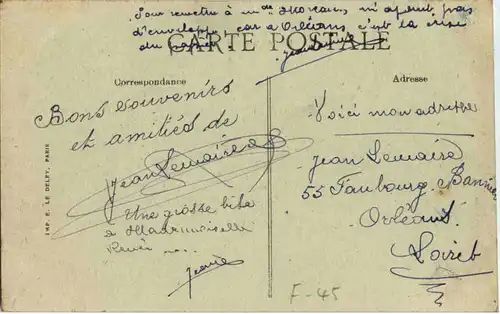 Pour remettre à Mme Moreau, n'ayant pas
d'enveloppe car à Orléans c'est la crise
du papier.
CARTE POSTALE
Correspondance
Adresse
Bons souvenirs
et amitiés de
Jean Lemaire
Une grosse bise
à Mademoiselle
Renée
Voici mon adresse
Jean Lemaire
55 Faubourg Bannier
Orléans
Loiret
IMP. E. LE DELEY, PARIS
F-45